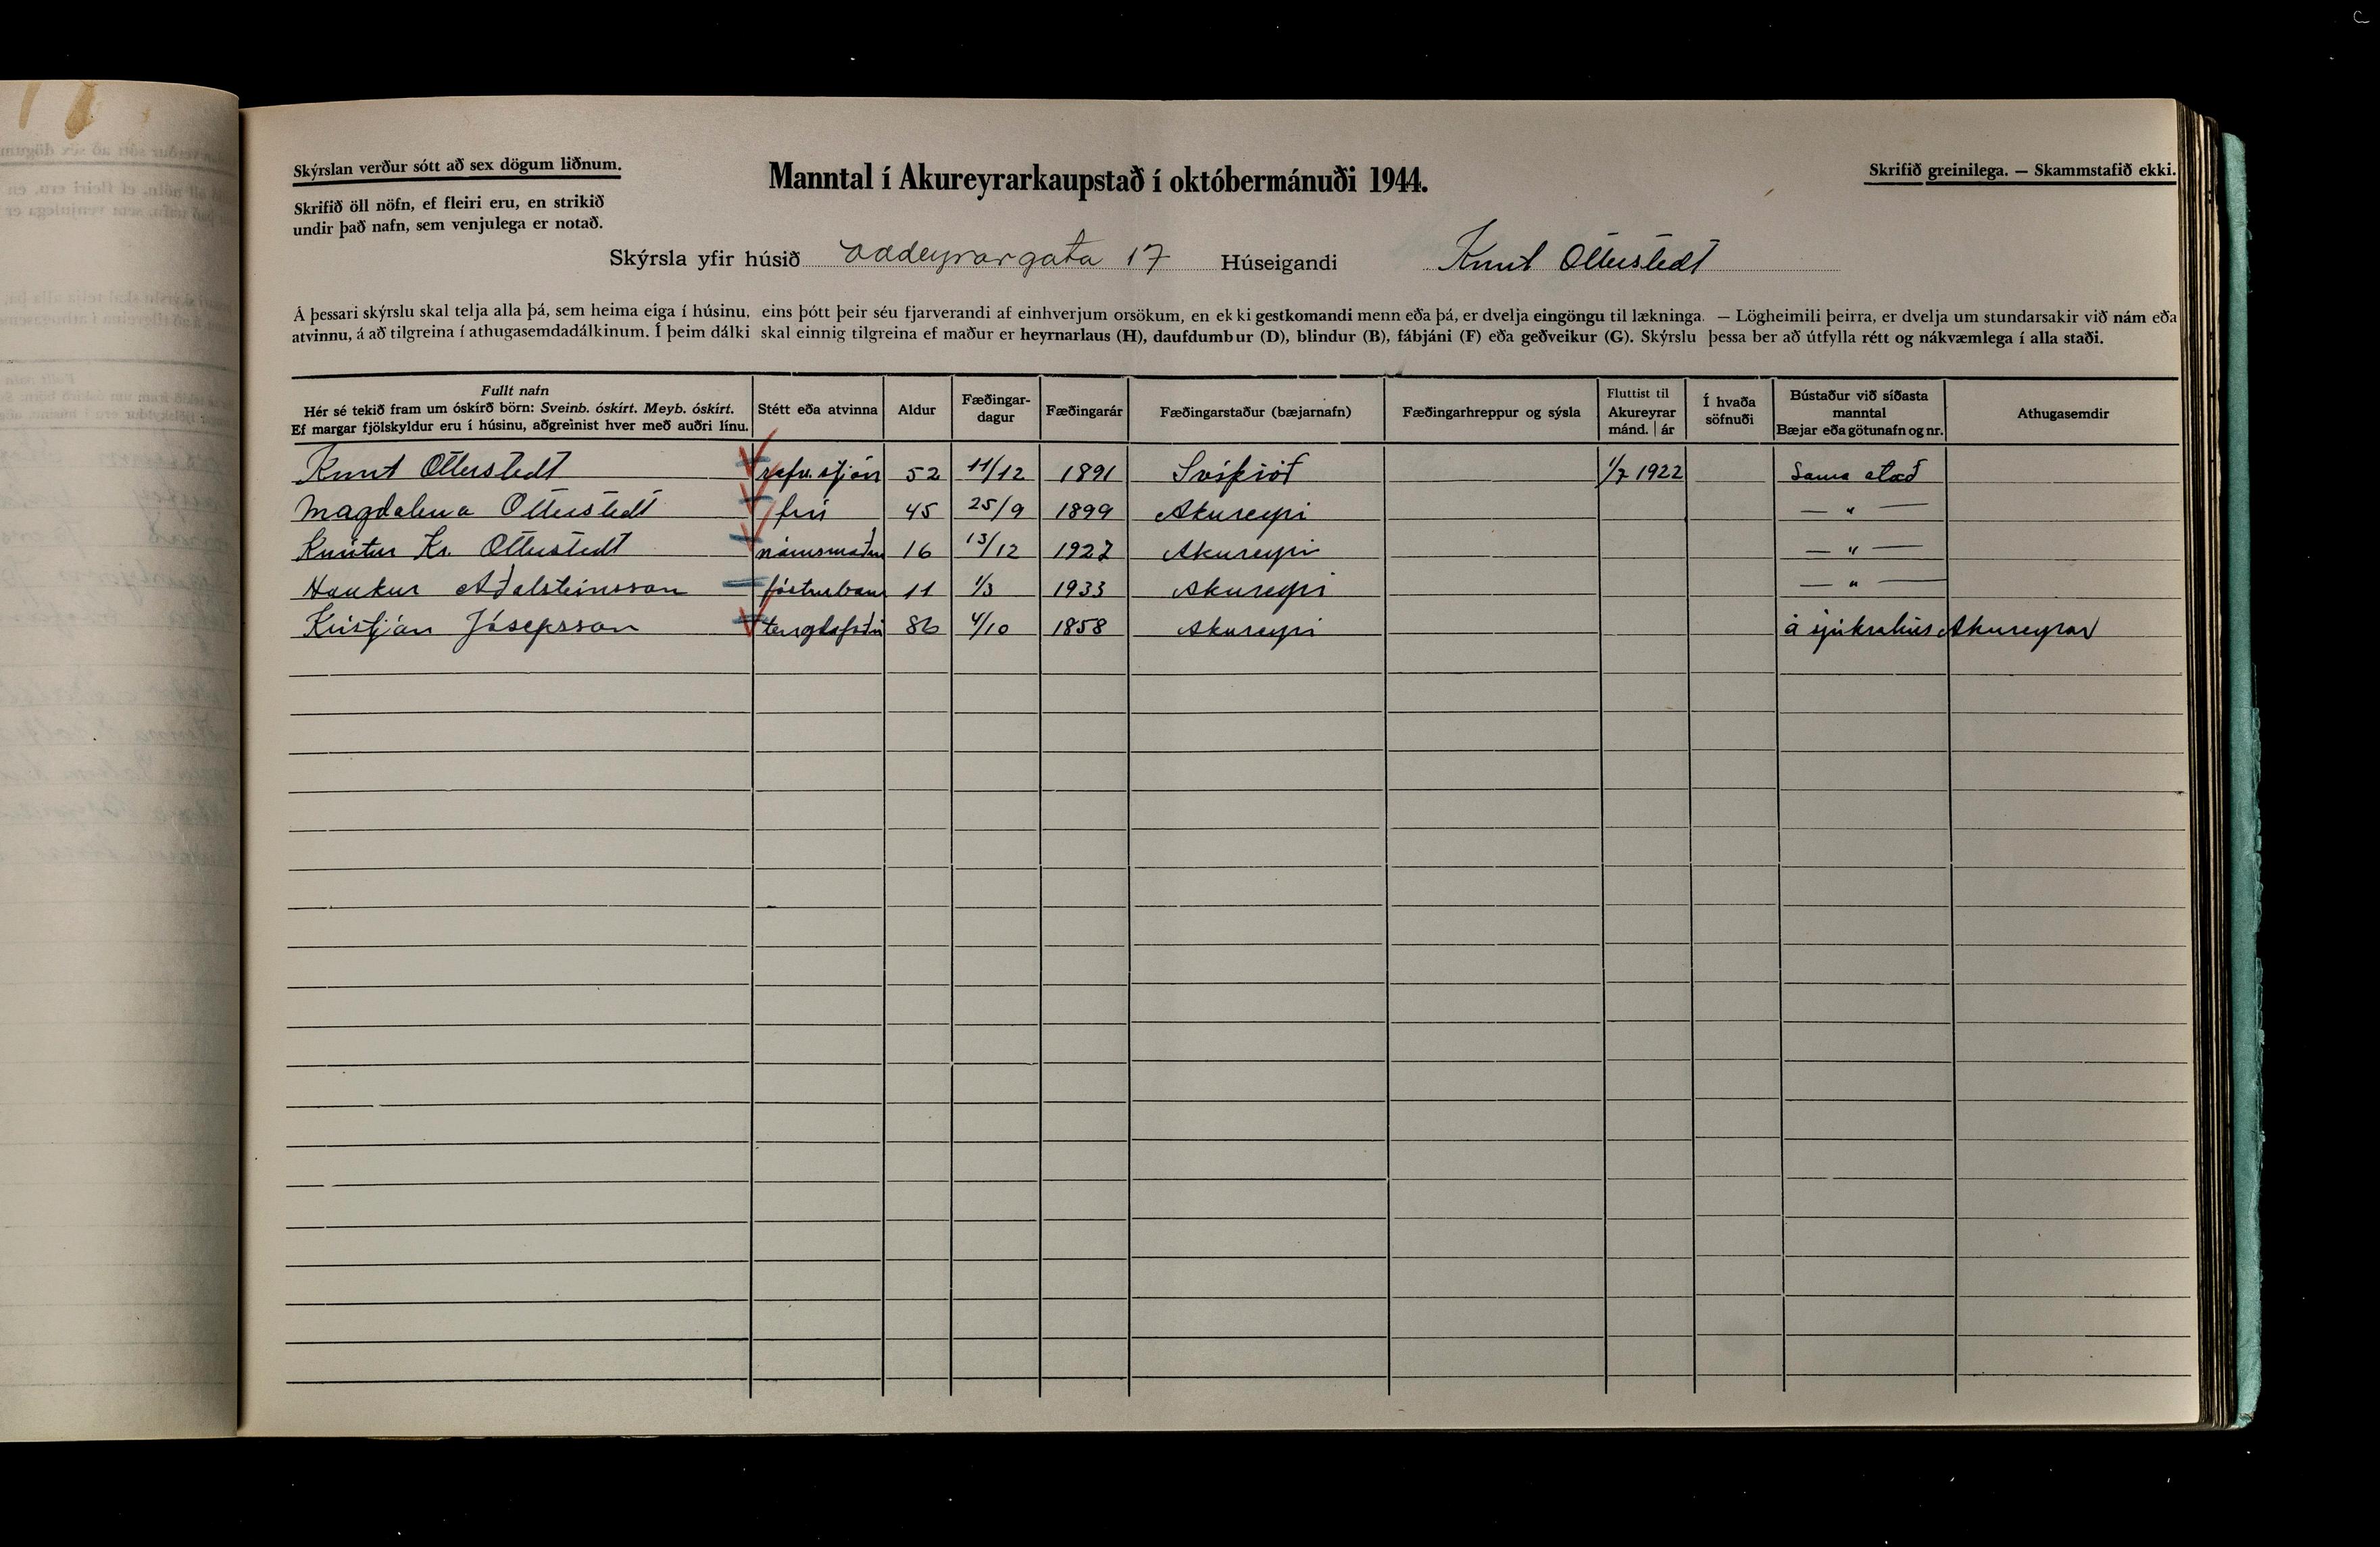 Skýrslan verður sótt að sex dögum liðnum.
Manntal í Akureyrarkaupstað í októbermánuði 1944.
Skrifið greinilega. — Skammstafið ekki.
Skrifið öll nöfn, ef fleiri eru, en strikið
undir það nafn, sem venjulega er notað.
Skýrsla yfir húsið Oddeyrargata 17 Húseigandi Knut Otterstedt
Á þessari skýrslu skal telja alla þá, sem heima eiga í húsinu, eins þótt þeir séu fjarverandi af einhverjum orsökum, en ekki gestkomandi menn eða þá, er dvelja eingöngu til lækninga. — Lögheimili þeirra, er dvelja um stundarsakir við nám eða
atvinnu, á að tilgreina í athugasemdadálkinum. Í þeim dálki skal einnig tilgreina ef maður er heyrnarlaus (H), daufdumbur (D), blindur (B), fábjáni (F) eða geðveikur (G). Skýrslu þessa ber að útfylla rétt og nákvæmlega í alla staði.
Fullt nafn
Hér sé tekið fram um óskírð börn: Sveinb. óskírt. Meyb. óskírt.
Ef margar fjölskyldur eru í húsinu, aðgreinist hver með auðri línu.
Stétt eða atvinna
Aldur
Fæðingar-
dagur
Fæðingarár
Fæðingarstaður (bæjarnafn)
Fæðingarhreppur og sýsla
Fluttist til
Akureyrar
mánd. | ár
Í hvaða
söfnuði
Bústaður við síðasta
manntal
Bæjar eða götunafn og nr.
Athugasemdir
Knut Otterstedt rafv.stjóri 52 11/12 1891 Svíþjóð 1/7 1922 Sama stað
Magdalena Otterstedt frú 45 25/9 1899 Akureyri — " —
Knútur Kr. Otterstedt námsmaður 16 13/12 1927 Akureyri — " —
Haukur Aðalsteinsson fósturbarn 11 1/3 1933 Akureyri — " —
Kristján Jósepsson tengdafaðir 86 4/10 1858 Akureyri á sjúkrahús Akureyrar